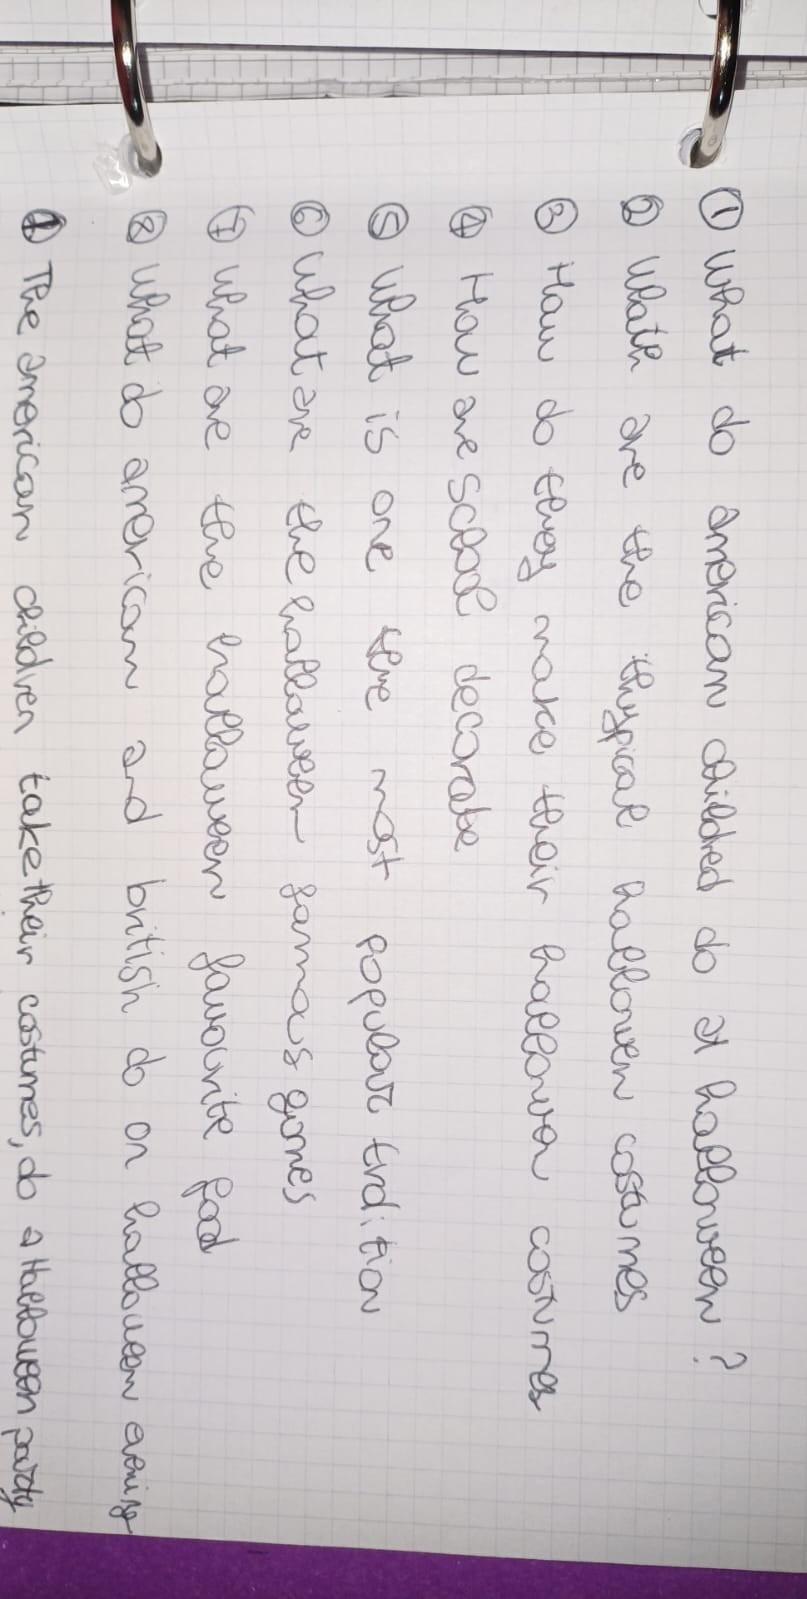 ① What do american childred do at halloween?
② Whath are the thypical hallowen costumes
③ How do they make their hallowen costumes
④ How are school decorate
⑤ What is one the most popular trdition
⑥ What are the halloween famous games
⑦ What are the halloween favourite food
⑧ What do american and british do on halloween evening
① The american children take their costumes, do a Halloween party